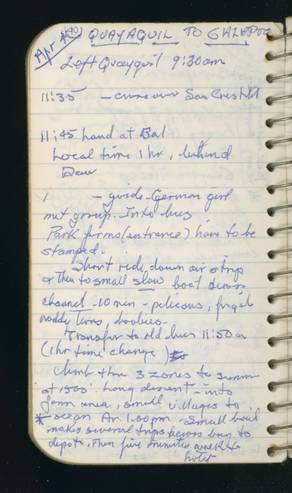 Apr
QUAYAQUIL TO GALAPOG
Left Quayquil 9:30am
11:35 - came over San Cristobl
11:45 land at Bal
Local time 1 hr, behind
- guide - German girl
met group. Into bus
Park forms (entrance) have to be
stamped.
Short ride, down air strip
or then to small slow boat down
channel - 10 min - pelicans, frigat
noddy terns, boobies.
Transfer to old bus 11:50 a
(1 hr time change)
climb thru 3 zones to summ
at 1500'. Long descent - into
farm area, small villages to
ocean Ar. 1:00pm. Small boat
makes several trips across bay to
depots, then five minutes walk to
hotel